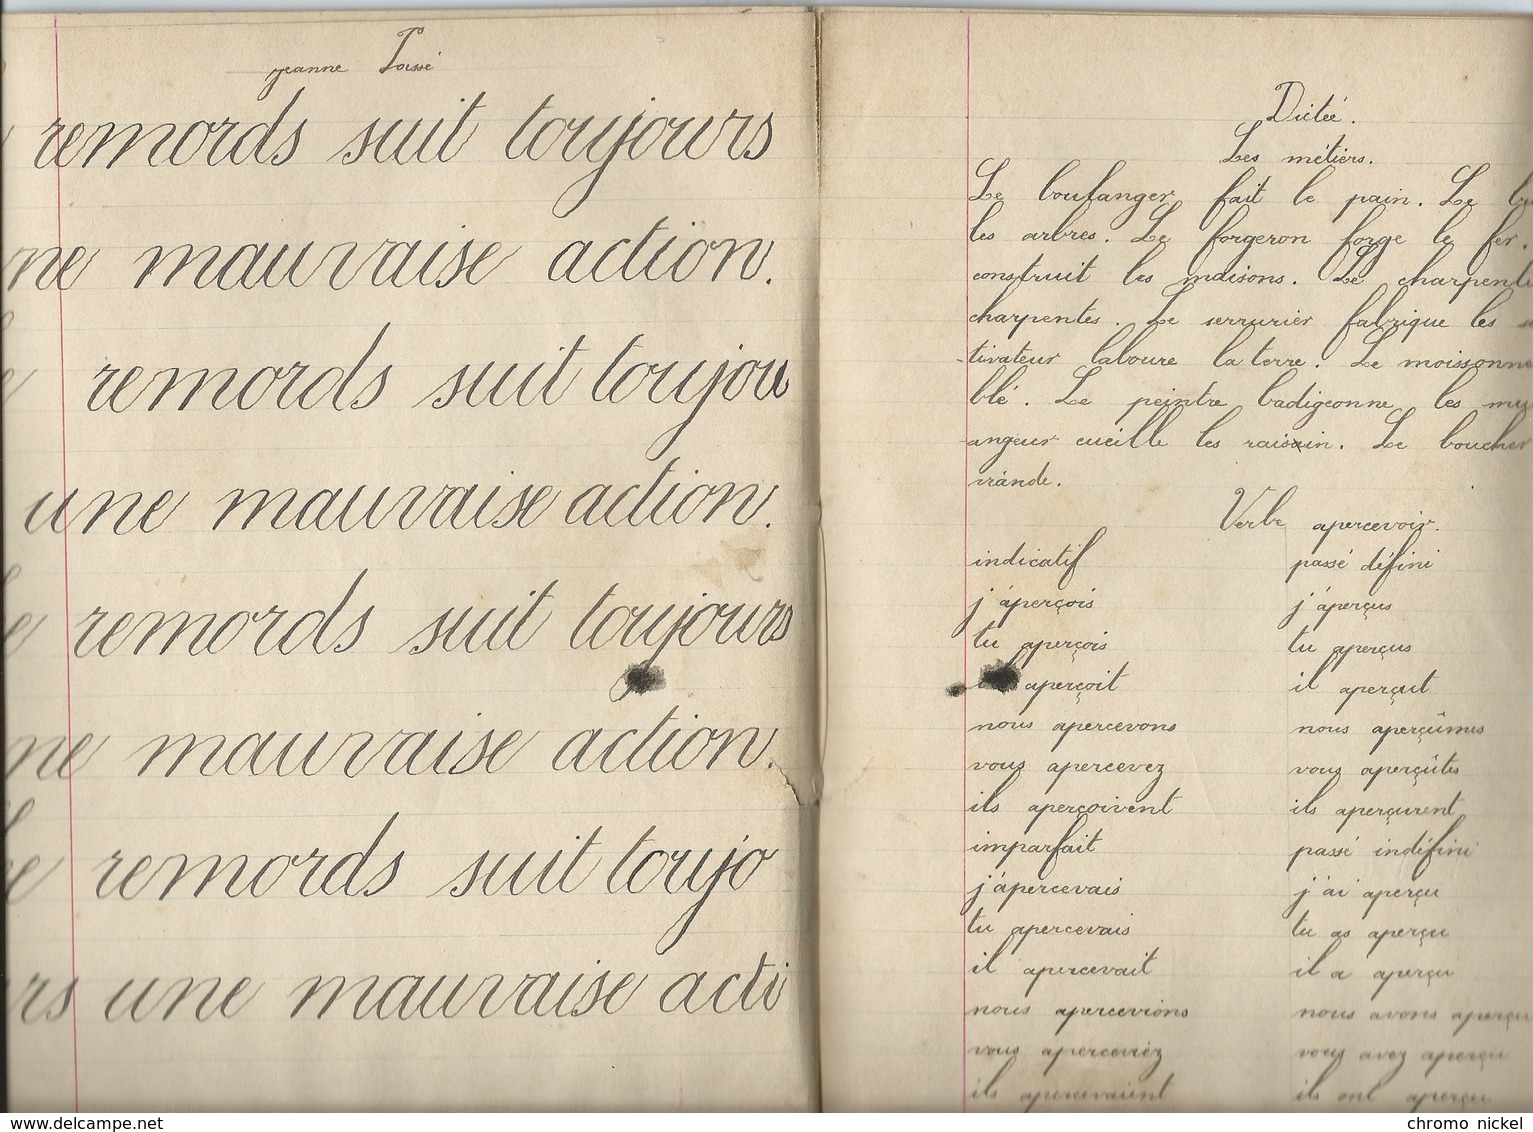 jeanne
remords suit toujours
ne mauvaise action.
remords suit toujou
une mauvaise action.
remords suit toujours
ne mauvaise action.
remords suit toujo
rs une mauvaise acti
Dictée.
Les métiers.
Le boulanger fait le pain. Le
les arbres. Le forgeron forge le fer.
construit les maisons. Le charpenti
charpentes. Le serrurier fabrique les
-tivateur laboure la terre. Le moissonne
blé. Le peintre badigeonne les mu
angeur cueille les raisin. Le boucher
viande.
Verbe apercevoir.
indicatif
j'aperçois
tu aperçois
aperçoit
nous apercevons
vous apercevez
ils aperçoivent
imparfait
j'apercevais
tu apercevais
il apercevait
nous apercevions
vous aperceviez
ils apercevaient
passé défini
j'aperçus
tu aperçus
il aperçut
nous aperçûmes
vous aperçûtes
ils aperçurent
passé indéfini
j'ai aperçu
tu as aperçu
il a aperçu
nous avons aperçu
vous avez aperçu
ils ont aperçu
www.delcampe.net
chromo nickel